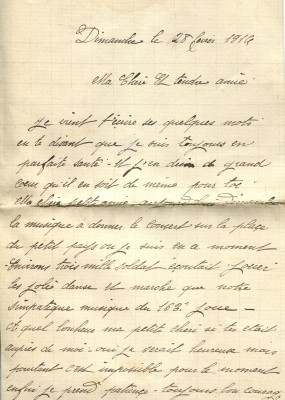 Dimanche le 28 fevrier 1916
Ma Chère Et tendre amie
Je vient t'écrire ses quelques mots
en te disant que je suis toujours en
parfaite santé. Et j'en désire de grand
cœur qu'il en soit de même pour toi
ma chère petite amie Dimanche
la musique à donner le concert sur la place
du petit pays ou je suis en ce moment
Environs trois mille soldat écoutait jouer
les jolie danse et marche que notre
simpatique musique du 163e joue —
O quel bonheur ma petite cheri si tu etait
auprès de moi - oui je serait heureux mais
pourtant c'est impossible pour le moment
enfin je prend patience - toujours bon courage